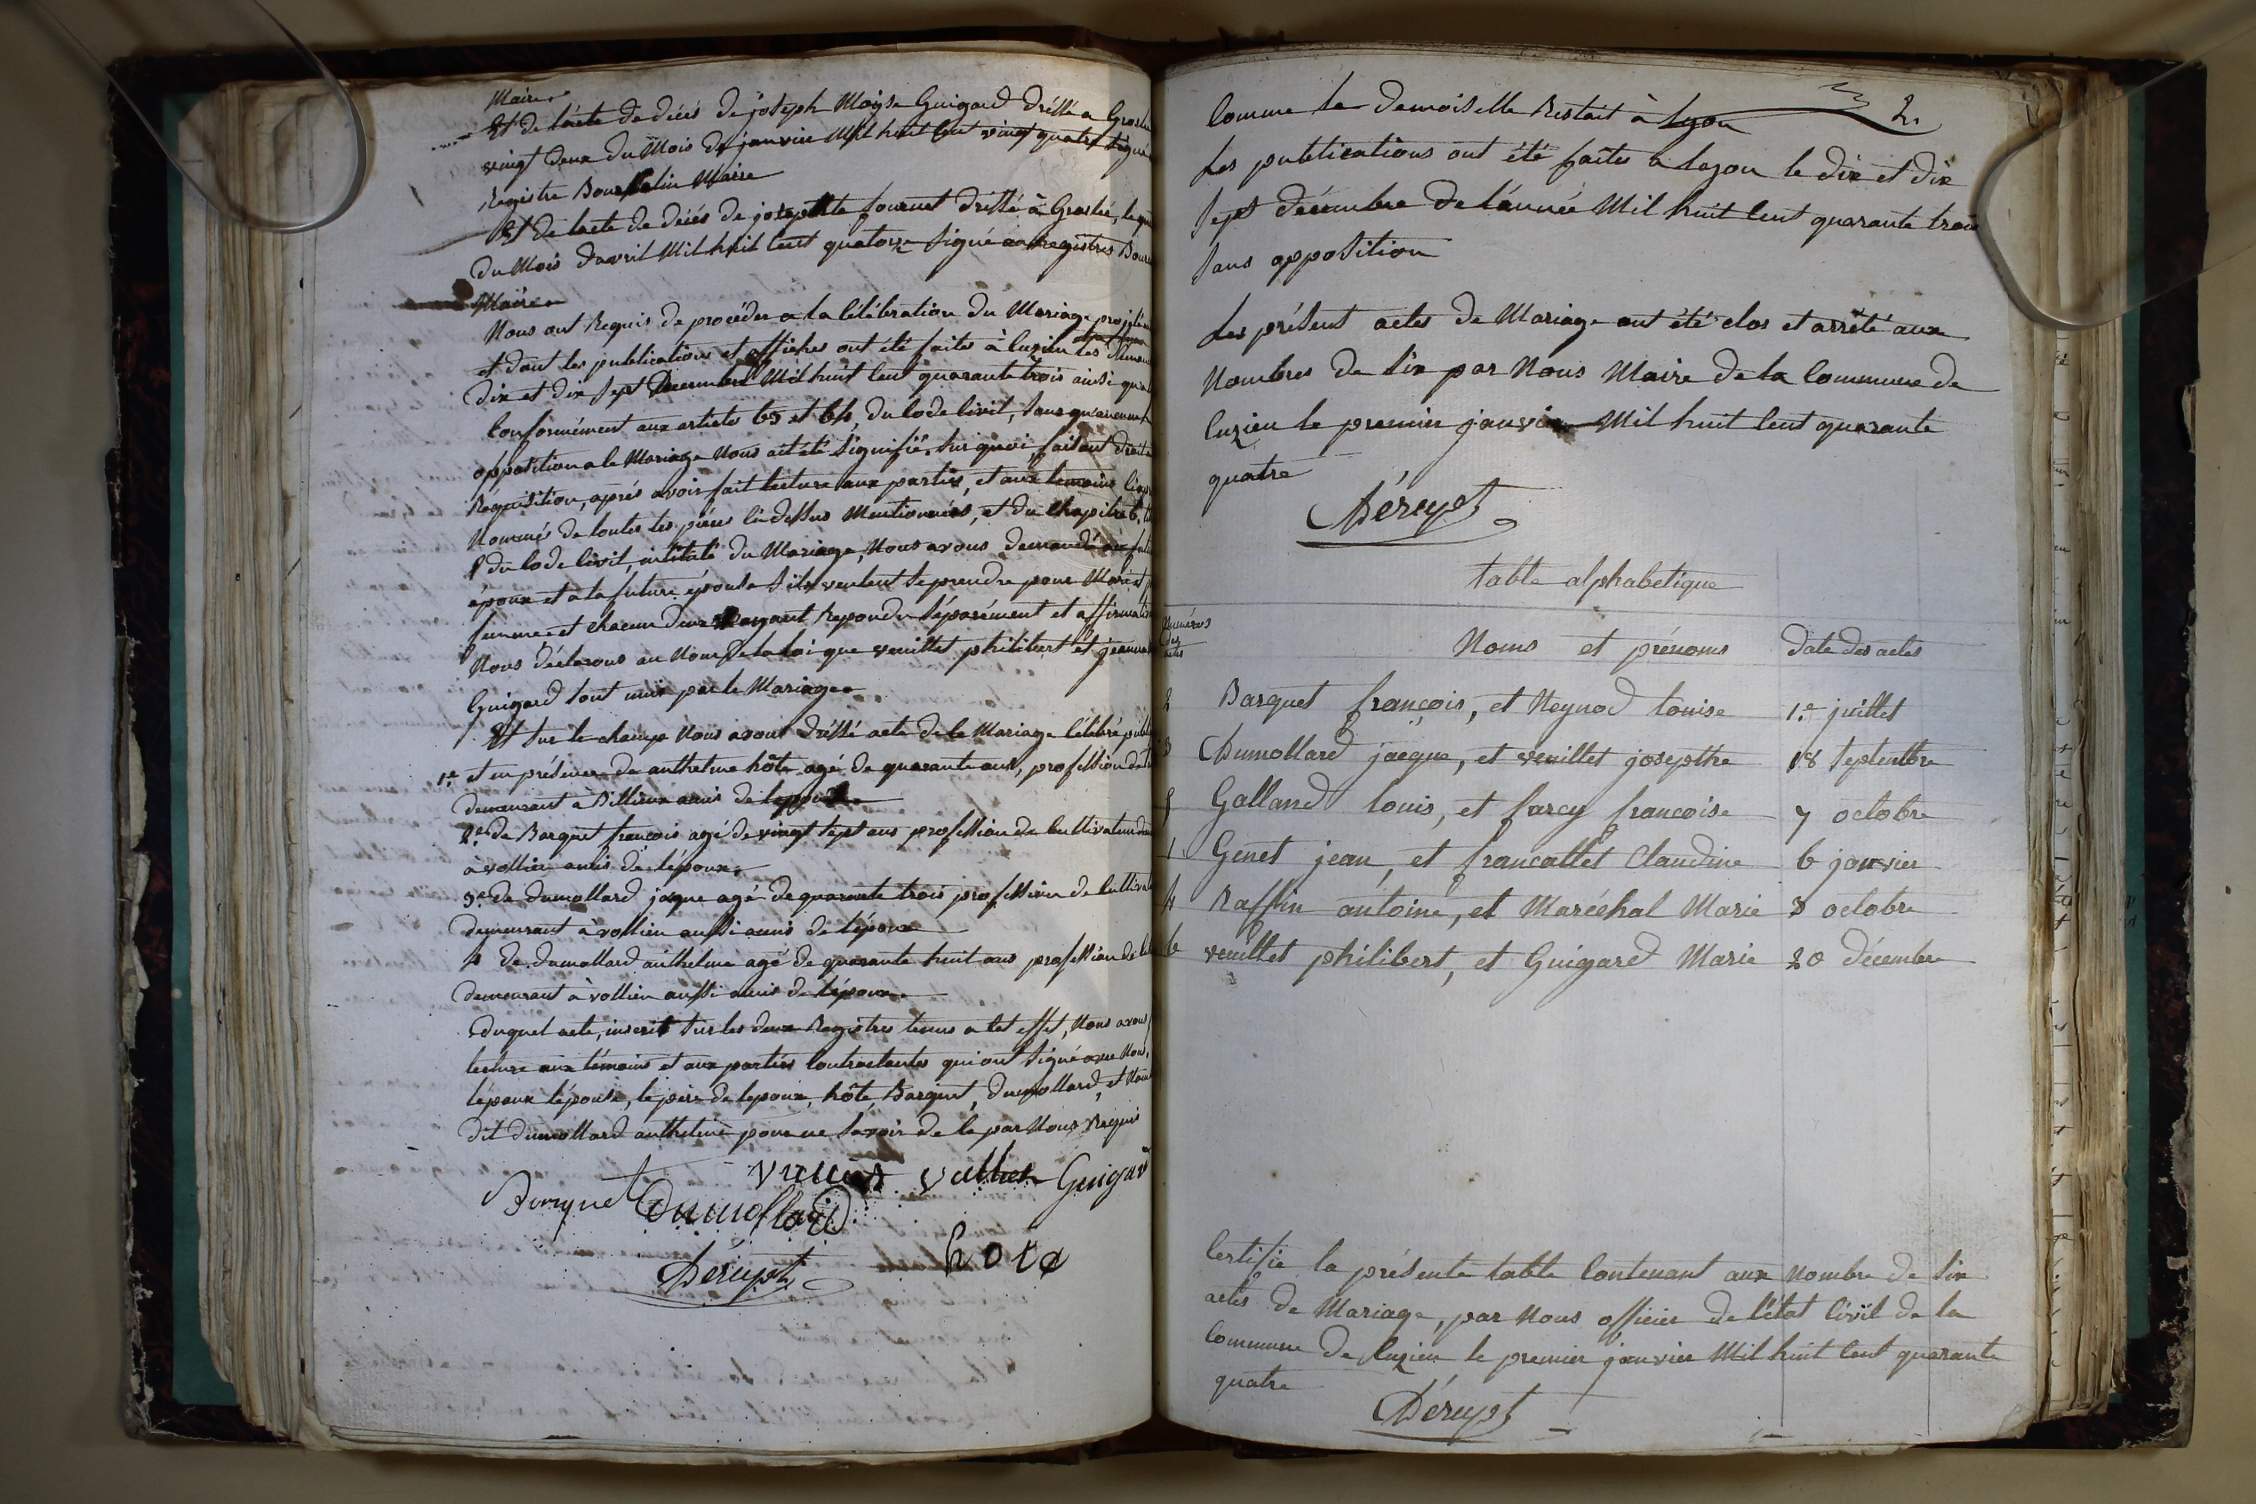 Maire
Et de l'acte de décès de joseph Moyse Guigard dréssé a Groslé
vingt deux du Mois de janvier Mil huit Cent vingt quatre signé
Registre Maire
Et de l'acte de décés de josephte fournet dréssé à Groslée, le
du Mois davril Mil huit Cent quatorze signé au registres
Maire
Nous ont Requis de procéder a la Célébration du Mariage projété
et dont les publications et affiches ont été faites à luzieu les
dix et dix sept Décembre Mil huit Cent quarante trois ainsi
Conformément aux articles 63 et 64, du Code Civil, sans qu'aucune
opposition a le Mariage Nous ait été signifiée, sur quoi, faisant droit
Réquisition, aprés avoir fait lecture aux parties, et aux temoins
Nommés de toutes les pièces Ci dessus Mentionnées, et du Chapitre 6,
du Code Civil, intitulé du Mariage, Nous avons demandé
époux et a la future épouse s'ils veulent se prendre pour Mari et
femme et chacun deux ayant Repondu séparément et
Nous déclarons au Nom De la loi que veuillet philibert et
Guigard sont unis par le Mariage
Et sur le champ Nous avons dréssé acte de le Mariage Célébré
1.e et en présence de anthelme hôte agé de quarante ans, profession
demeurant à Billieu amis de
2.e de Barquet francois agé de vingt sept ans profession de Cultivateur
à vollien amis de l'époux
3.e de dumollard jaque agé de quarante trois profession de
demeurant à vollien aussi amis de l'époux
4 de dumollard anthelme agé de quarante huit ans profession de
demeurant à vollien aussi amis de l'époux
duquel acte, inscrit sur les deux Registres tenus a cet effet, Nous avons
lecture aux témoins et aux parties Contractantes qui ont signé avec Nous,
l'époux l'épouse, le pére de lepoux, hôte, Barquet, dumollard, et Non
dit dumollard anthelme pour ne savoir de le par Nous Requis
Guigard
Barquet Dumollard
hote
Déruyet
2.
Comme la demoiselle Restait à Lyon
Les publications ont été faites a Layon le dix et dix
sept décembre de l'année Mil huit Cent quarante trois
sans opposition
Les présent actes de Mariage ont été clos et arrêté aux
Nombres de six par Nous Maire de la Commune de
luzieu le premier janvier Mil huit Cent quarante
quatre
Déruyet
table alphabetique
Numéros des actes Noms et prénoms date des actes
2 Barquet françois, et Neynod louise 1.e juillet
3 Dumollard jacque, et veuillet josepthe 18 septembre
5 Galland louis, et farcy francoise 7 octobre
1 Genet jean, et francallet Claudine 6 janvier
4 Raffin antoine, et Maréchal Marie 3 octobre
6 veuillet philibert, et Guigard Marie 20 décembre
Certifie la présente table Contenant aux Nombre de six
actes de Mariage, par Nous officier de l'état Civil de la
Commune de luzieu le premier janvier Mil huit Cent quarante
quatre
Déruyet